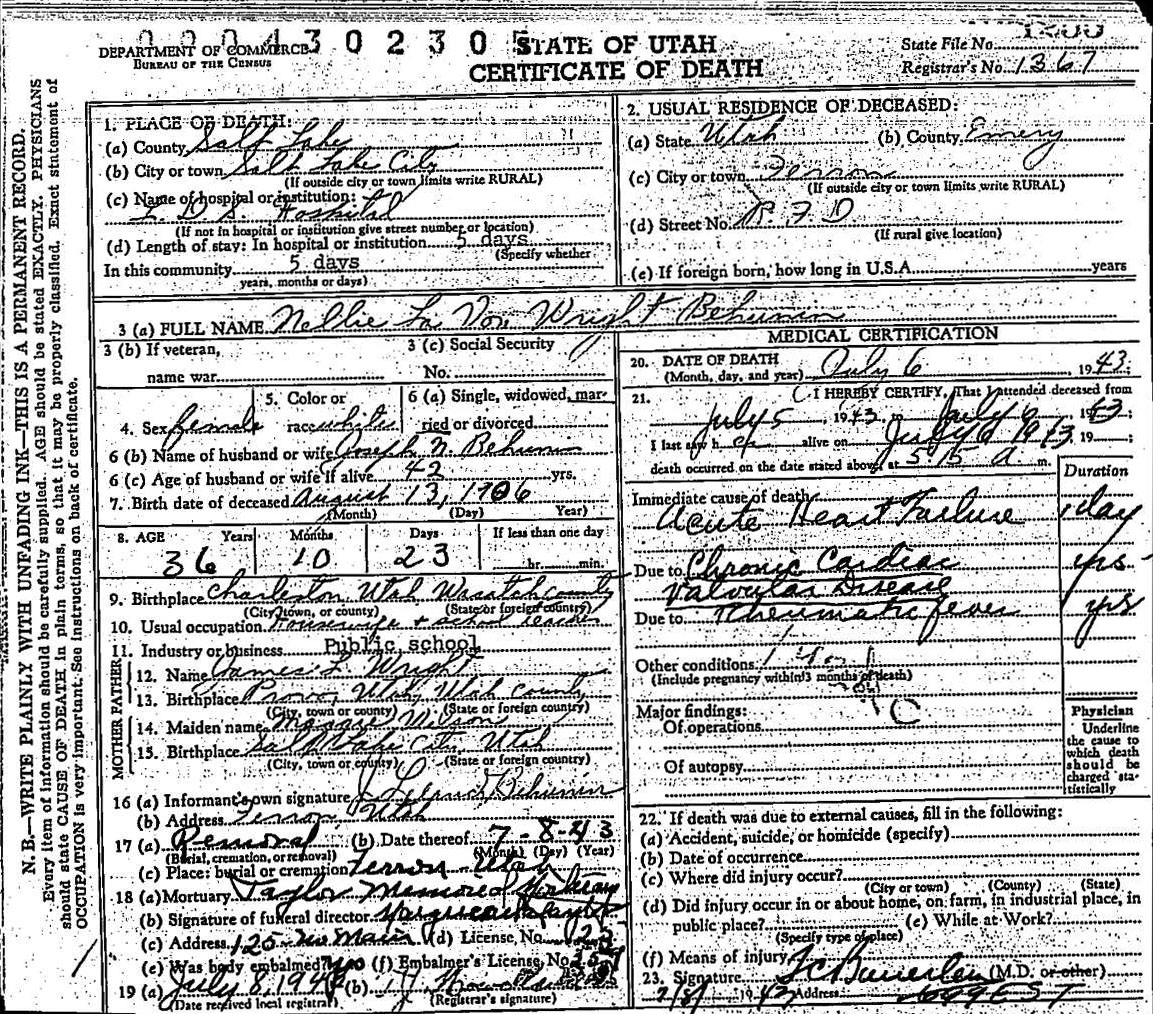 000430230
DEPARTMENT OF COMMERCE
BUREAU OF THE CENSUS
STATE OF UTAH
CERTIFICATE OF DEATH
State File No.
Registrar's No. 1367
N. B.—WRITE PLAINLY WITH UNFADING INK—THIS IS A PERMANENT RECORD.
Every item of information should be carefully supplied. AGE should be stated EXACTLY. PHYSICIANS
should state CAUSE OF DEATH in plain terms, so that it may be properly classified. Exact statement of
OCCUPATION is very important. See instructions on back of certificate.
1. PLACE OF DEATH:
(a) County Salt Lake
(b) City or town Salt Lake City
(If outside city or town limits write RURAL)
(c) Name of hospital or institution:
L. D. S. Hospital
(If not in hospital or institution give street number or location)
(d) Length of stay: In hospital or institution 5 days
(Specify whether
In this community 5 days
years, months or days)
2. USUAL RESIDENCE OF DECEASED:
(a) State Utah (b) County Emery
(c) City or town Ferron
(If outside city or town limits write RURAL)
(d) Street No. R F D
(If rural give location)
(e) If foreign born, how long in U.S.A. years
3 (a) FULL NAME Nellie La Von Wright Behunin
3 (b) If veteran, 3 (c) Social Security
name war No.
4. Sex female 5. Color or race white 6 (a) Single, widowed, married or divorced
6 (b) Name of husband or wife Joseph N. Behunin
6 (c) Age of husband or wife if alive 42 yrs.
7. Birth date of deceased August 13, 1906
(Month) (Day) Year)
8. AGE Years Months Days If less than one day
36 10 23 hr. min.
9. Birthplace Charleston Utah Wasatch county
(City town, or county) (State or foreign country)
10. Usual occupation Housewife + school teacher
11. Industry or business Public school
FATHER
12. Name James L. Wright
13. Birthplace Provo, Utah, Utah County
(City, town or county) (State or foreign country)
MOTHER
14. Maiden name Wilson
15. Birthplace Salt Lake City, Utah
(City, town or county) (State or foreign country)
16 (a) Informant's own signature Behunin
(b) Address Ferron, Utah
17 (a) Removal (b) Date thereof 7-8-43
(Burial, cremation, or removal) (Month) (Day) (Year)
(c) Place: burial or cremation Ferron Utah
18 (a) Mortuary Taylor Memorial Mortuary
(b) Signature of funeral director
(c) Address 125 No Main (d) License, No.
(e) Was body embalmed? yes (f) Embalmer's License, No.
19 (a) July 8, 194 (b)
(Date received local registrar) (Registrar's signature)
MEDICAL CERTIFICATION
20. DATE OF DEATH July 6, 1943
(Month, day, and year)
21. I HEREBY CERTIFY, That I attended deceased from
July 5 1943 to July 6 1943;
I last saw her alive on July 6 1943. 19
death occurred on the date stated above, at 5 15 a m.
Duration
Immediate cause of death
Acute Heart Failure 1 day
Due to Chronic Cardiac yrs
Valvular Disease
Due to Rheumatic fever yrs
Other conditions
(Include pregnancy within 3 months of death)
Major findings:
Of operations
Of autopsy
Physician
Underline
the cause to
which death
should be
charged sta-
tistically
22. If death was due to external causes, fill in the following:
(a) Accident, suicide, or homicide (specify)
(b) Date of occurrence
(c) Where did injury occur?
(City or town) (County) (State)
(d) Did injury occur in or about home, on farm, in industrial place, in
public place? (e) While at Work?
(Specify type of place)
(f) Means of injury
23. Signature (M.D. or other)
Address